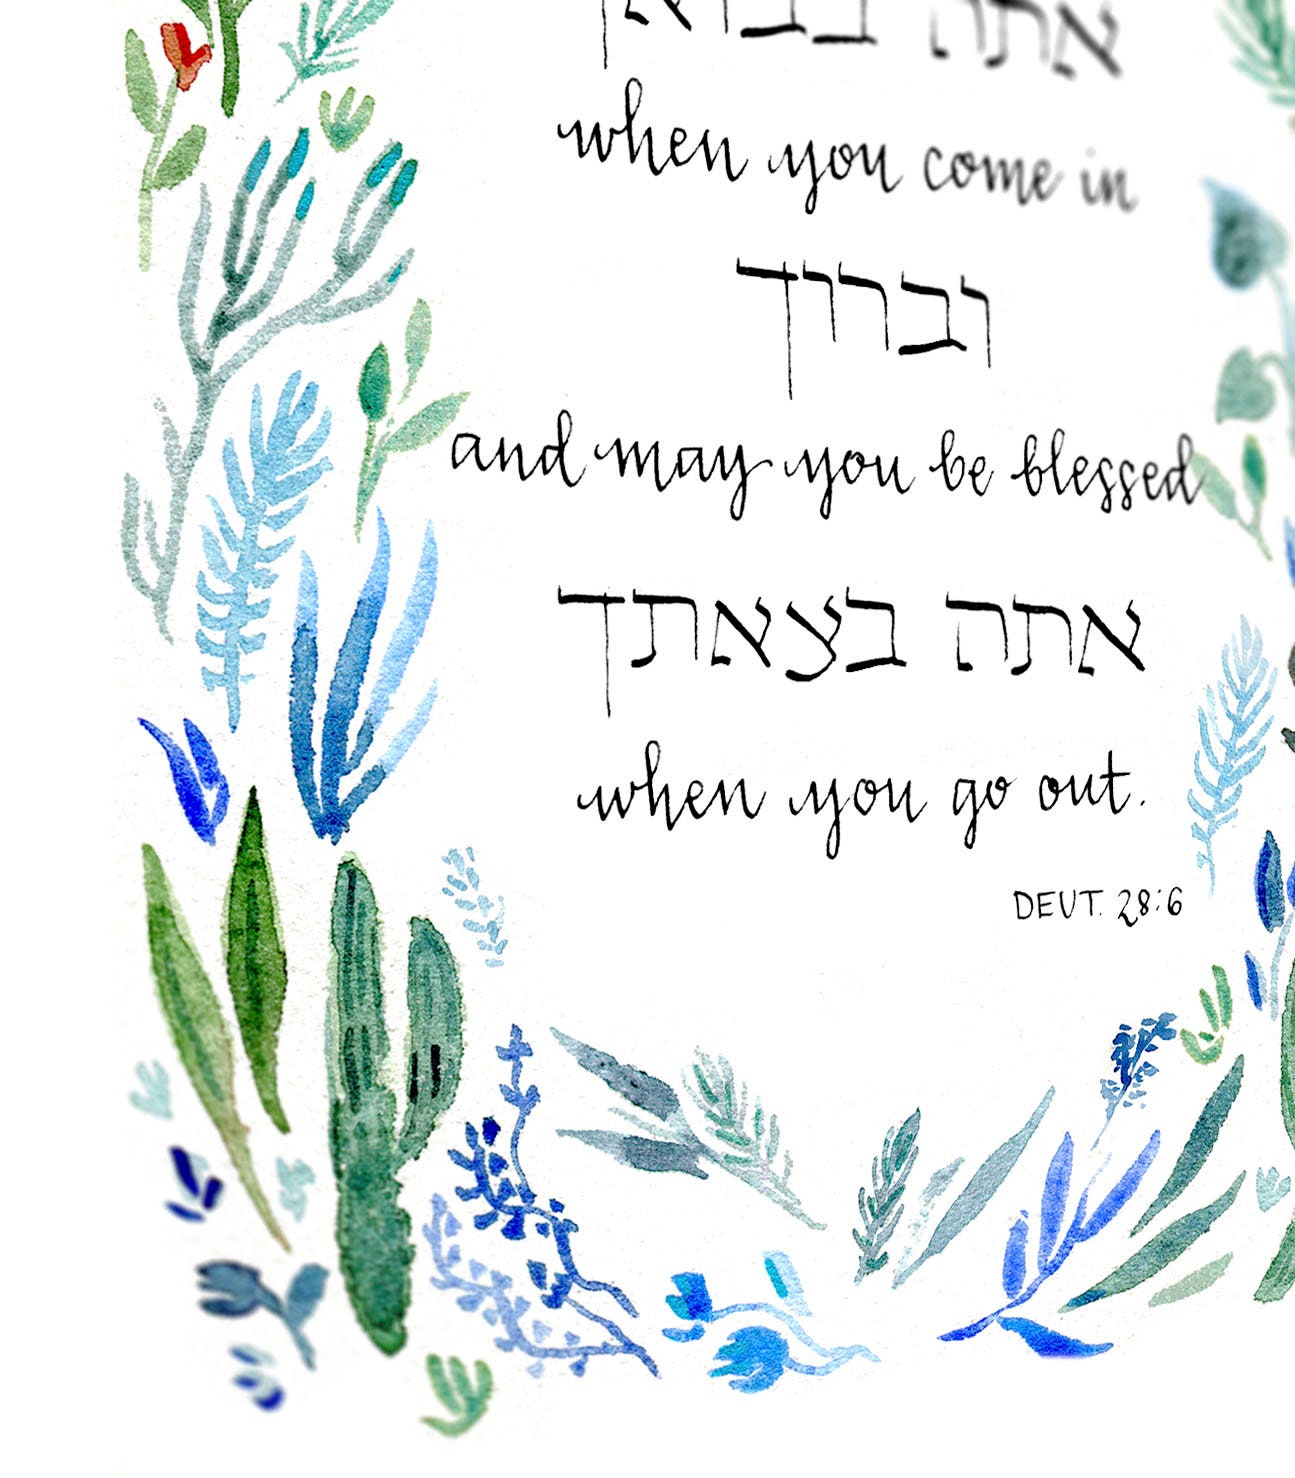 אתה בבואך
when you come in
וברוך
and may you be blessed
אתה בצאתך
when you go out.
DEUT. 28:6